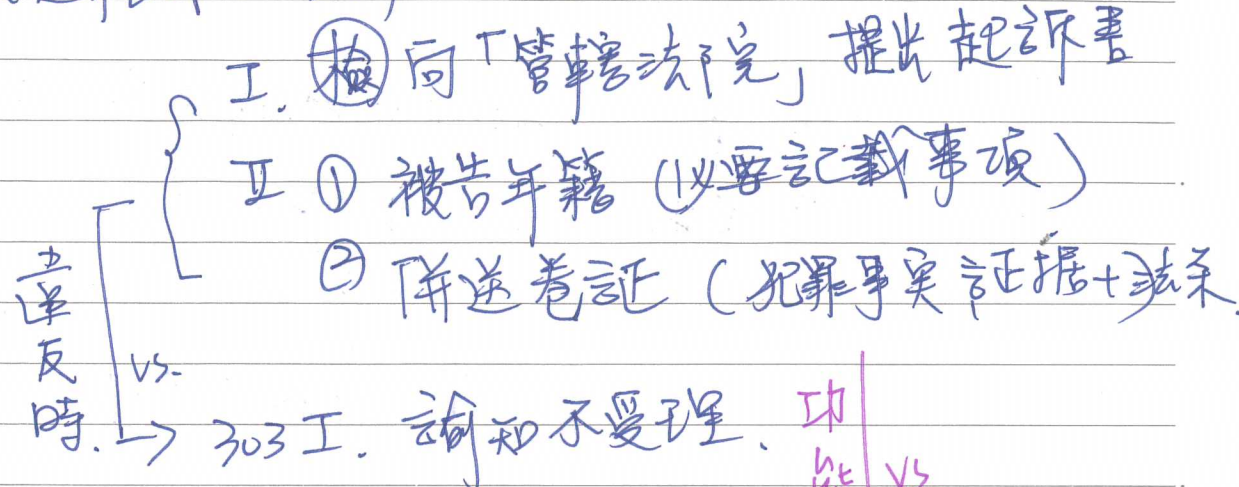 I. 檢 向「管轄法院」提出起訴書
II ① 被告年籍 (必要記載事項)
② 併送卷証 (犯罪事実 証据+法条.
違反時. vs. → 303 I. 諭知不受理.
功能 vs